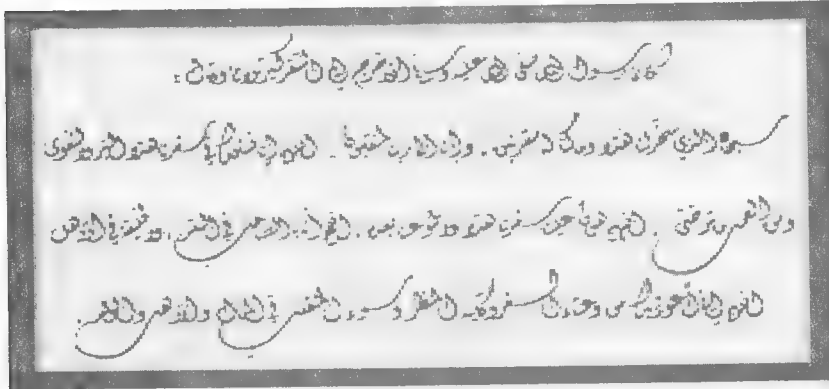 كان رسول الله صلى الله عليه وسلم إذا خرج السفر كبر ثلاثا وقال :
سبحان الذي سخر لنا هذا وما كنا له مقرنين . وإنا إلى ربنا لمنقلبون . اللهم إنا نسألك في سفرنا هذا البر والتقوى
ومن العمل ما ترضى . اللهم هون علينا سفرنا هذا واطو عنا بعده . اللهم أنت الصاحب في السفر ، والخليفة في الأهل
اللهم إني أعوذ بك من وعثاء السفر وكآبة المنظر وسوء المنقلب في المال والأهل